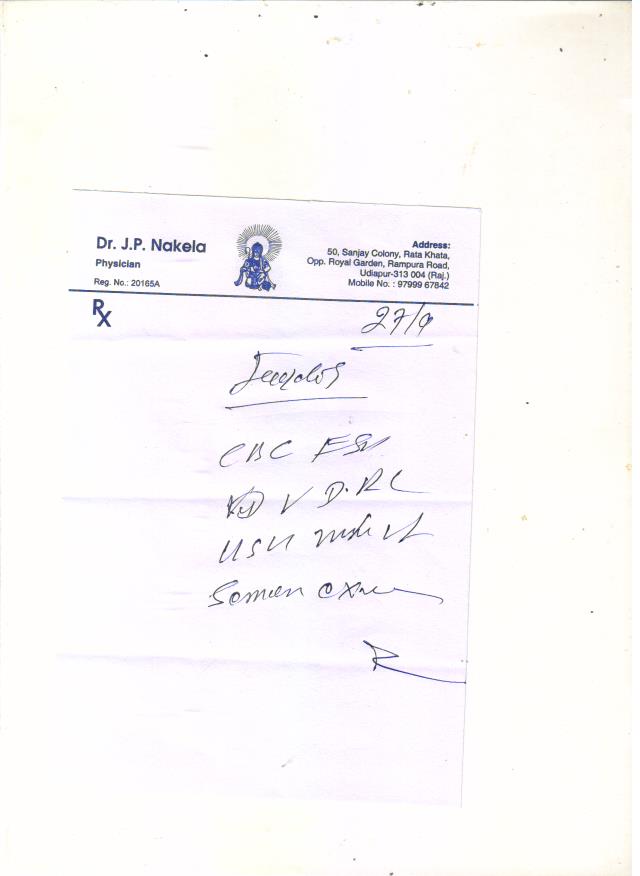 Dr. J.P. Nakela
Physician
Reg. No.: 20165A
Address:
50, Sanjay Colony, Rata Khata,
Opp. Royal Garden, Rampura Road,
Udiapur-313 004 (Raj.)
Mobile No. : 97999 67842
Rx
27/9
CBC ESR
V D.RL
Semen exam